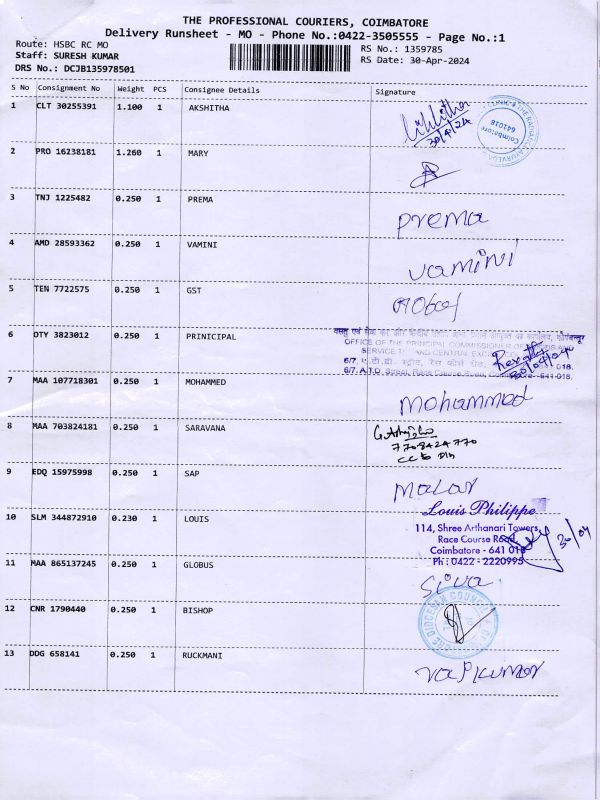 THE PROFESSIONAL COURIERS, COIMBATORE
Delivery Runsheet - MO - Phone No.:0422-3505555 - Page No.:1
Route: HSBC RC MO
RS No.: 1359785
Staff: SURESH KUMAR
RS Date: 30-Apr-2024
DRS No.: DCJB135978501
S No Consignment No Weight PCS Consignee Details Signature
1 CLT 30255391 1.100 1 AKSHITHA
30/4/24
641018
Coimbatore
2 PRO 16238181 1.260 1 MARY
3 TNJ 1225482 0.250 1 PREMA
Prema
4 AMD 28593362 0.250 1 VAMINI
vamini
5 TEN 7722575 0.250 1 GST
6 DTY 3823012 0.250 1 PRINICIPAL
OFFICE OF THE PRINCIPAL COMMISSIONER OF
SERVICE AND CENTRAL
6/7, A.T.D. Street, Race Course Road, 641 018.
7 MAA 107718301 0.250 1 MOHAMMED
Mohammed
8 MAA 703824181 0.250 1 SARAVANA
7708424770
9 EDQ 15975998 0.250 1 SAP
Malar
10 SLM 344872910 0.230 1 LOUIS
Louis Philippe
114, Shree Arthanari Towers,
Race Course Road,
Coimbatore - 641 018
Ph : 0422 - 2220995
30/04
11 MAA 865137245 0.250 1 GLOBUS
Siva
12 CNR 1790440 0.250 1 BISHOP
13 DDG 658141 0.250 1 RUCKMANI